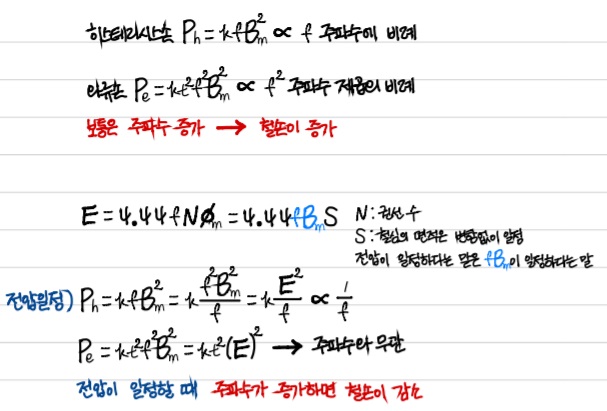 히스테리시스손 Pₕ = kfBₘ² ∝ f 주파수에 비례
와류손 Pₑ = kt²f²Bₘ² ∝ f² 주파수 제곱에 비례
보통은 주파수 증가 → 철손이 증가
E = 4.44fNϕₘ = 4.44fBₘS
N : 권선 수
S : 철심의 면적은 변함없이 일정
전압이 일정하다는 말은 fBₘ이 일정하다는 말
전압일정) Pₕ = kfBₘ² = k f²Bₘ²/f = k E²/f ∝ 1/f
Pₑ = kt²f²Bₘ² = kt²(E)² → 주파수와 무관
전압이 일정할 때 주파수가 증가하면 철손이 감소